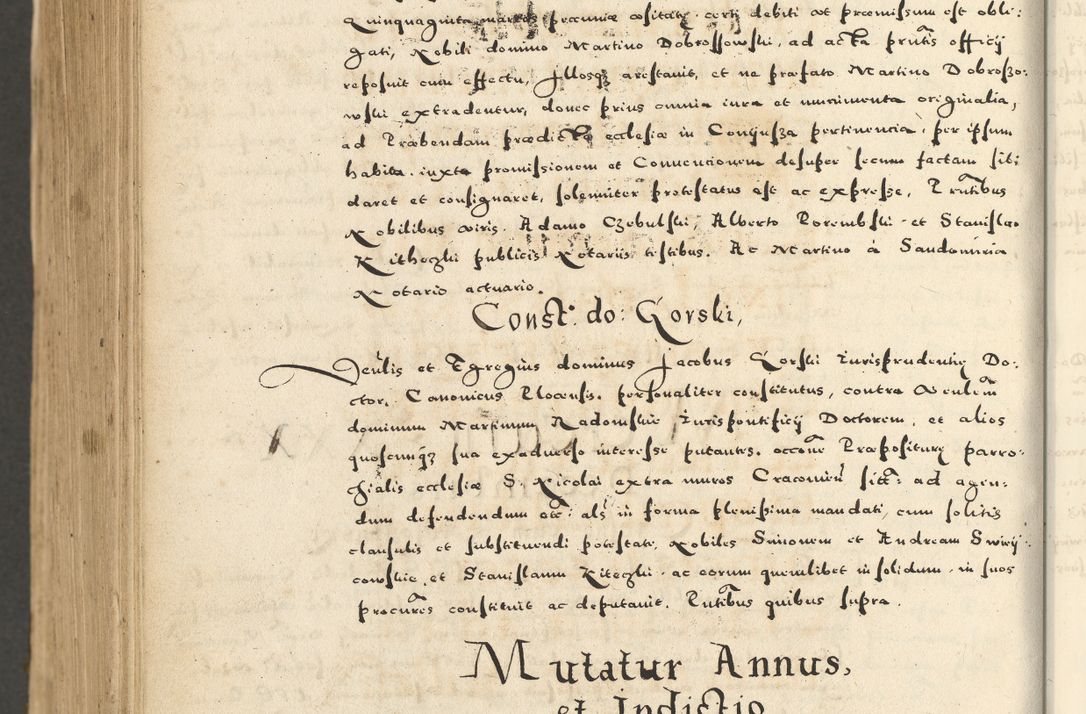 Quinquaginta marcis pecuniæ ... certi debiti ... præmissum est obli:
gati, Nobili domino Martino Dobrossowski, ad acta prñtis officij
reposuit cum effectu, Illosq; arestauit, et ne præfato Martino Dobrosso:
wski extradentur, donec prius omnia iura et munimenta originalia,
ad Præbendam prædictæ ecclesiæ in Coniusza pertinencia, per ipsum
habita, iuxta promissionem et Conuencionem desuper secum factam sibi
daret et consignaret, solemniter protestatus est ac expresse, Prñtibus
Nobilibus viris, Adamo Czebulski, Alberto Porembski et Stanislao
Kitheczki publicis Notariis testibus. Ac Martino à Sandomiria
Notario actuario.
Constº. do: Gorski,
Venlis et Egregius dominus Jacobus Gorski Iurisprudentię Do:
ctor, Canonicus Plocensis. personaliter constitutus, contra Venlem
dominum Martinum Radomskie Iurispontificij Doctorem, et alios
quoscunq; sua exaduerso interesse putantes. occõne Præpositurę parro:
chialis ecclesiæ S. Nicolai extra muros Cracouień sitæ: ad agen:
dum defendendum etc: als in forma plenissima mandati, cum solitis
clausulis et substituendi potestate, Nobiles Simonem et Andream Swięij:
cowskie, et Stanislaum Kiteczki, ac eorum quemlibet in solidum, in suos
procũres constituit ac deputauit. Prñtibus quibus supra.
Mutatur Annus,
et Indictio